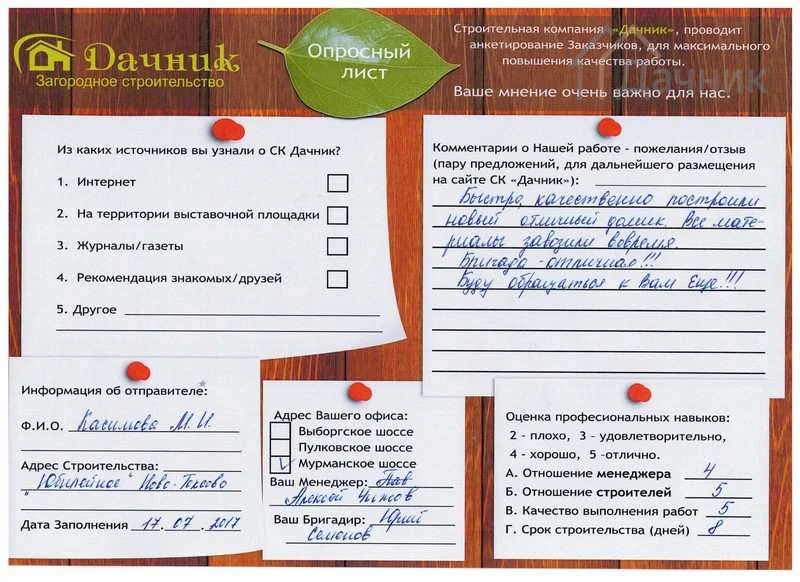 Дачник
Загородное строительство
Опросный
лист
Строительная компания «Дачник», проводит
анкетирование Заказчиков, для максимального
повышения качества работы.
Дачник
Ваше мнение очень важно для нас.
Из каких источников вы узнали о СК Дачник?
1. Интернет
2. На территории выставочной площадки
3. Журналы/газеты
4. Рекомендация знакомых/друзей
5. Другое
Комментарии о Нашей работе - пожелания/отзыв
(пару предложений, для дальнейшего размещения
на сайте СК «Дачник»):
Быстро, качественно построили
новый отличный домик. Все мате-
риалы завозили вовремя.
Бригада - отличная!!!
Буду обращаться к Вам еще!!!
Информация об отправителе:
Ф.И.О. Касимова М.И.
Адрес Строительства:
"Юбилейное" Ново-Токсово
Дата Заполнения 17.07.2017
Адрес Вашего офиса:
Выборгское шоссе
Пулковское шоссе
Мурманское шоссе
Ваш Менеджер:
Алексей
Ваш Бригадир: Юрий
Семенов
Оценка професиональных навыков:
2 - плохо, 3 - удовлетворительно,
4 - хорошо, 5 -отлично.
А. Отношение менеджера 4
Б. Отношение строителей 5
В. Качество выполнения работ 5
Г. Срок строительства (дней) 8